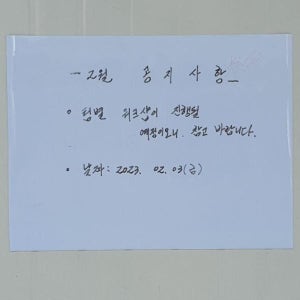 - 2월 공지사항 -
○ 팀별 워크샵이 진행될
예정이오니, 참고 바랍니다.
• 날짜: 2023. 02. 03(금)